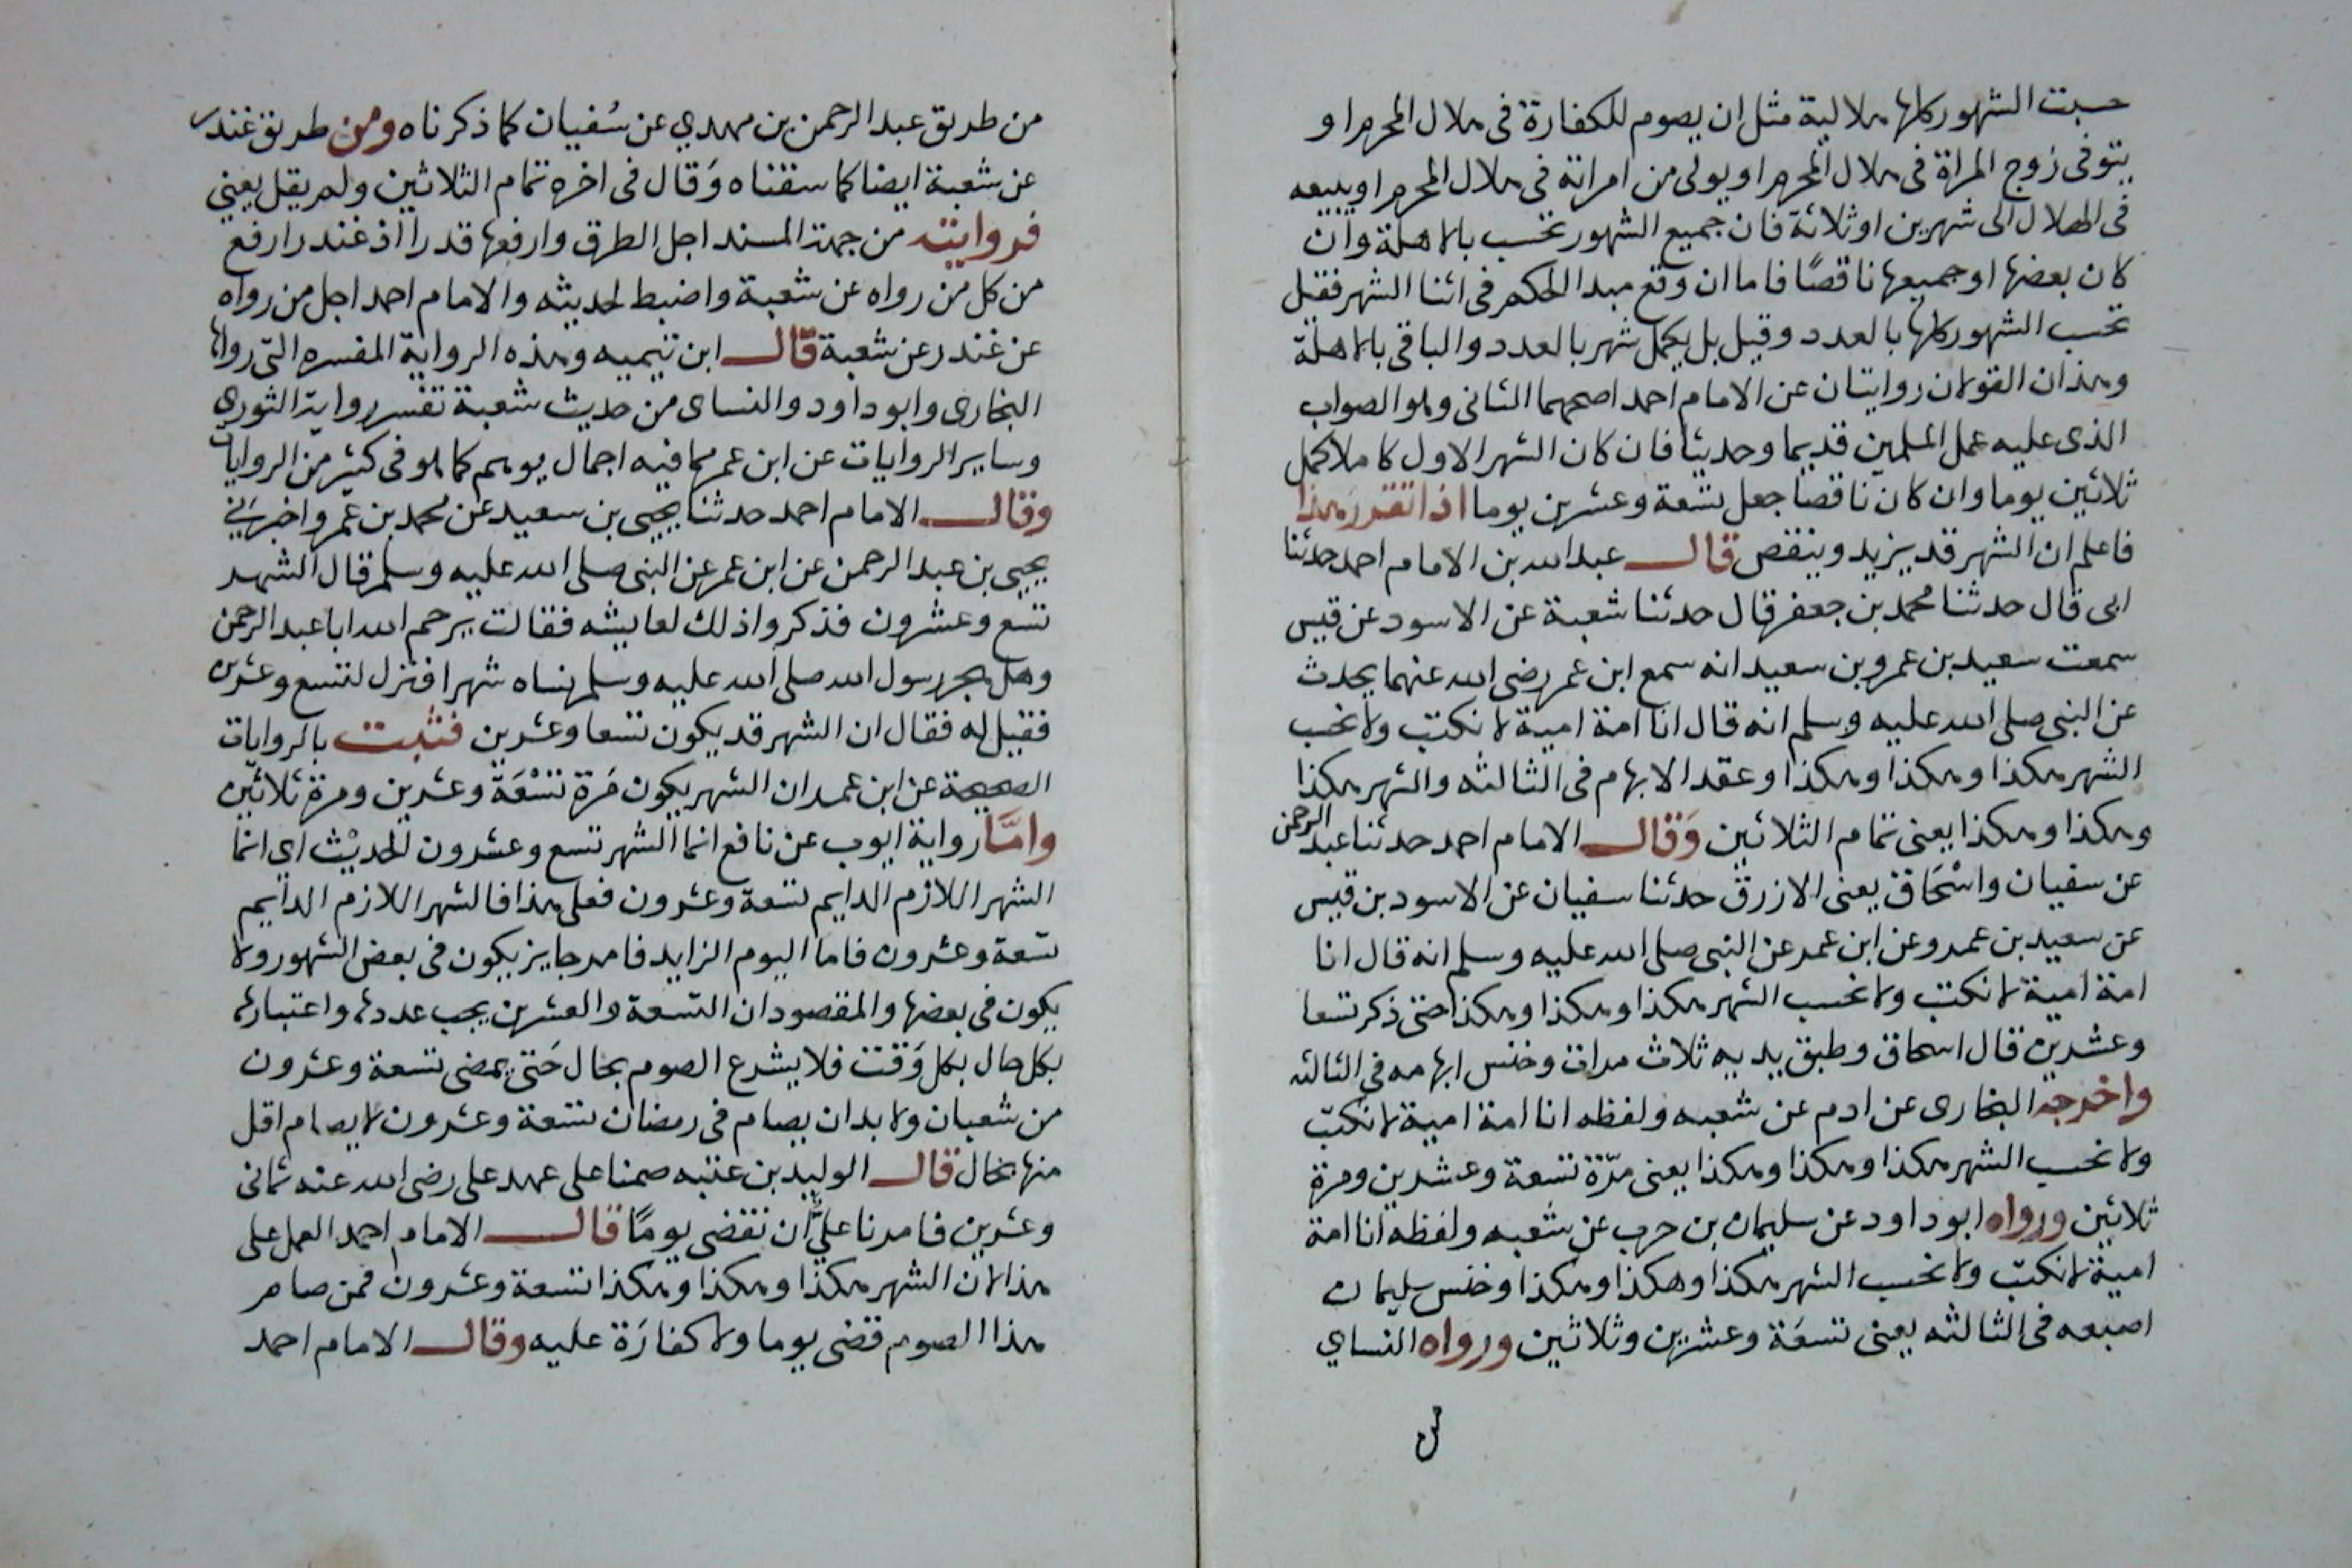 حسبت الشهور كلها هلالية مثل ان يصوم للكفارة فى هلال المحرم او
يتوفى زوج المراة فى هلال المحرم او يولى من امراته فى هلال المحرم او يبيعه
فى الهلال الى شهرين او ثلاثة فان جميع الشهور تحسب بالاهلة وان
كان بعضها او جميعها ناقصًا فاما ان وقع مبدا الحكم فى اثنا الشهر فقيل
تحسب الشهور كلها بالعدد وقيل بل يكمل شهر بالعدد والباقى بالاهلة
وهذان القولان روايتان عن الامام احمد اصحهما الثانى وهو الصواب
الذى عليه عمل المسلمين قديما وحديثا فان كان الشهر الاول كاملا كمل
ثلاثين يوما وان كان ناقصا جعل تسعة وعشرين يوما اذا تقرر هذا
فاعلم ان الشهر قد يزيد وينقص قال عبد الله بن الامام احمد حدثنا
ابى قال حدثنا محمد بن جعفر قال حدثنا شعبة عن الاسود عن قيس
سمعت سعيد بن عمرو بن سعيد انه سمع ابن عمر رضى الله عنهما يحدث
عن النبى صلى الله عليه وسلم انه قال انا امة امية لا نكتب ولا نحسب
الشهر هكذا وهكذا وهكذا وعقد الابهام فى الثالثه والشهر هكذا
وهكذا وهكذا يعنى تمام الثلاثين وَقال الامام احمد حدثنا عبد الرحمن
عن سفيان واسْحَاق يعنى الازرق حدثنا سفيان عن الاسود بن قيس
عن سعيد بن عمرو عن ابن عمر عن النبى صلى الله عليه وسلم انه قال انا
امة امية لا نكتب ولا نحسب الشهر هكذا وهكذا وهكذا حتى ذكر تسعا
وعشرين قال اسحاق وطبق يديه ثلاث مرات وخنس ابهامه فى الثالثه
واخرجه البخارى عن ادم عن شعبه ولفظه انا امة امية لا نكتب
ولا نحسب الشهر هكذا وهكذا وهكذا يعنى مرّة تسعة وعشرين ومرة
ثلاثين ورواه ابو داود عن سليمان بن حرب عن شعبه ولفظه انا امة
امية لا نكتب ولا نحسب الشهر هكذا وهكذا وهكذا وخنس سليمان
اصبعه فى الثالثه يعنى تسعَة وعشرين وثلاثين ورواه النساي
من طريق عبد الرحمن بن مهدي عن سُفيان كما ذكرناه ومن طريق غندر
عن شعبة ايضا كما سقناه وَقال فى اخره تمام الثلاثين ولم يقل يعني
فروايته من جهة المسند اجل الطرق وارفعها قدرا اذ غندر ارفع
من كل من رواه عن شعبة واضبط لحديثه والامام احمد اجل من رواه
عن غندر عن شعبة قال ابن تيميه وهذه الرواية المفسره التى رواها
البخارى وابو داود والنساى من حديث شعبة تفسر رواية الثورى
وساير الروايات عن ابن عمر مما فيه اجمال يوهم كما هو فى كثير من الروايات
وقال الامام احمد حدثنا يحيى بن سعيد عن محمد بن عمرو اخبرنى
يحيى بن عبد الرحمن عن ابن عمر عن النبى صلى الله عليه وسلم قال الشهر
تسع وعشرون فذكروا ذلك لعايشه فقالت يرحم الله ابا عبد الرحمن
وهل هجر رسول الله صلى الله عليه وسلم نساه شهرا فنزل لتسع وعشرين
فقيل له فقال ان الشهر قد يكون تسعا وعشرين فثبت بالروايات
الصحيحة عن ابن عمر ان الشهر يكون مَرة تسْعَة وعشرين ومرة ثلاثين
وامَّا رواية ايوب عن نافع انما الشهر تسع وعشرون الحديْث اي انما
الشهر اللازم الدايم تسعة وعشرون فعلى هذا فالشهر اللازم الدايم
تسعة وعشرون فاما اليوم الزايد فامر جايز يكون فى بعض الشهور ولا
يكون فى بعضها والمقصود ان التسعة والعشرين يجب عددها واعتبارها
بكل حال بكل وَقت فلا يشرع الصوم بحال حَتى يمضى تسعة وعشرون
من شعبان ولا بد ان يصام فى رمضان تسعة وعشرون لا يصام اقل
منها بحال قال الوليد بن عتبه صمنا على عهد على رضى الله عنه ثمانى
وعشرين فامرنا عليٌّ ان نقضى يومًا قال الامام احمد العمل على
هذا لان الشهر هكذا وهكذا وهكذا تسعة وعشرون فمن صام
هذا الصوم قضى يوما ولا كفارَة عليه وقال الامام احمد